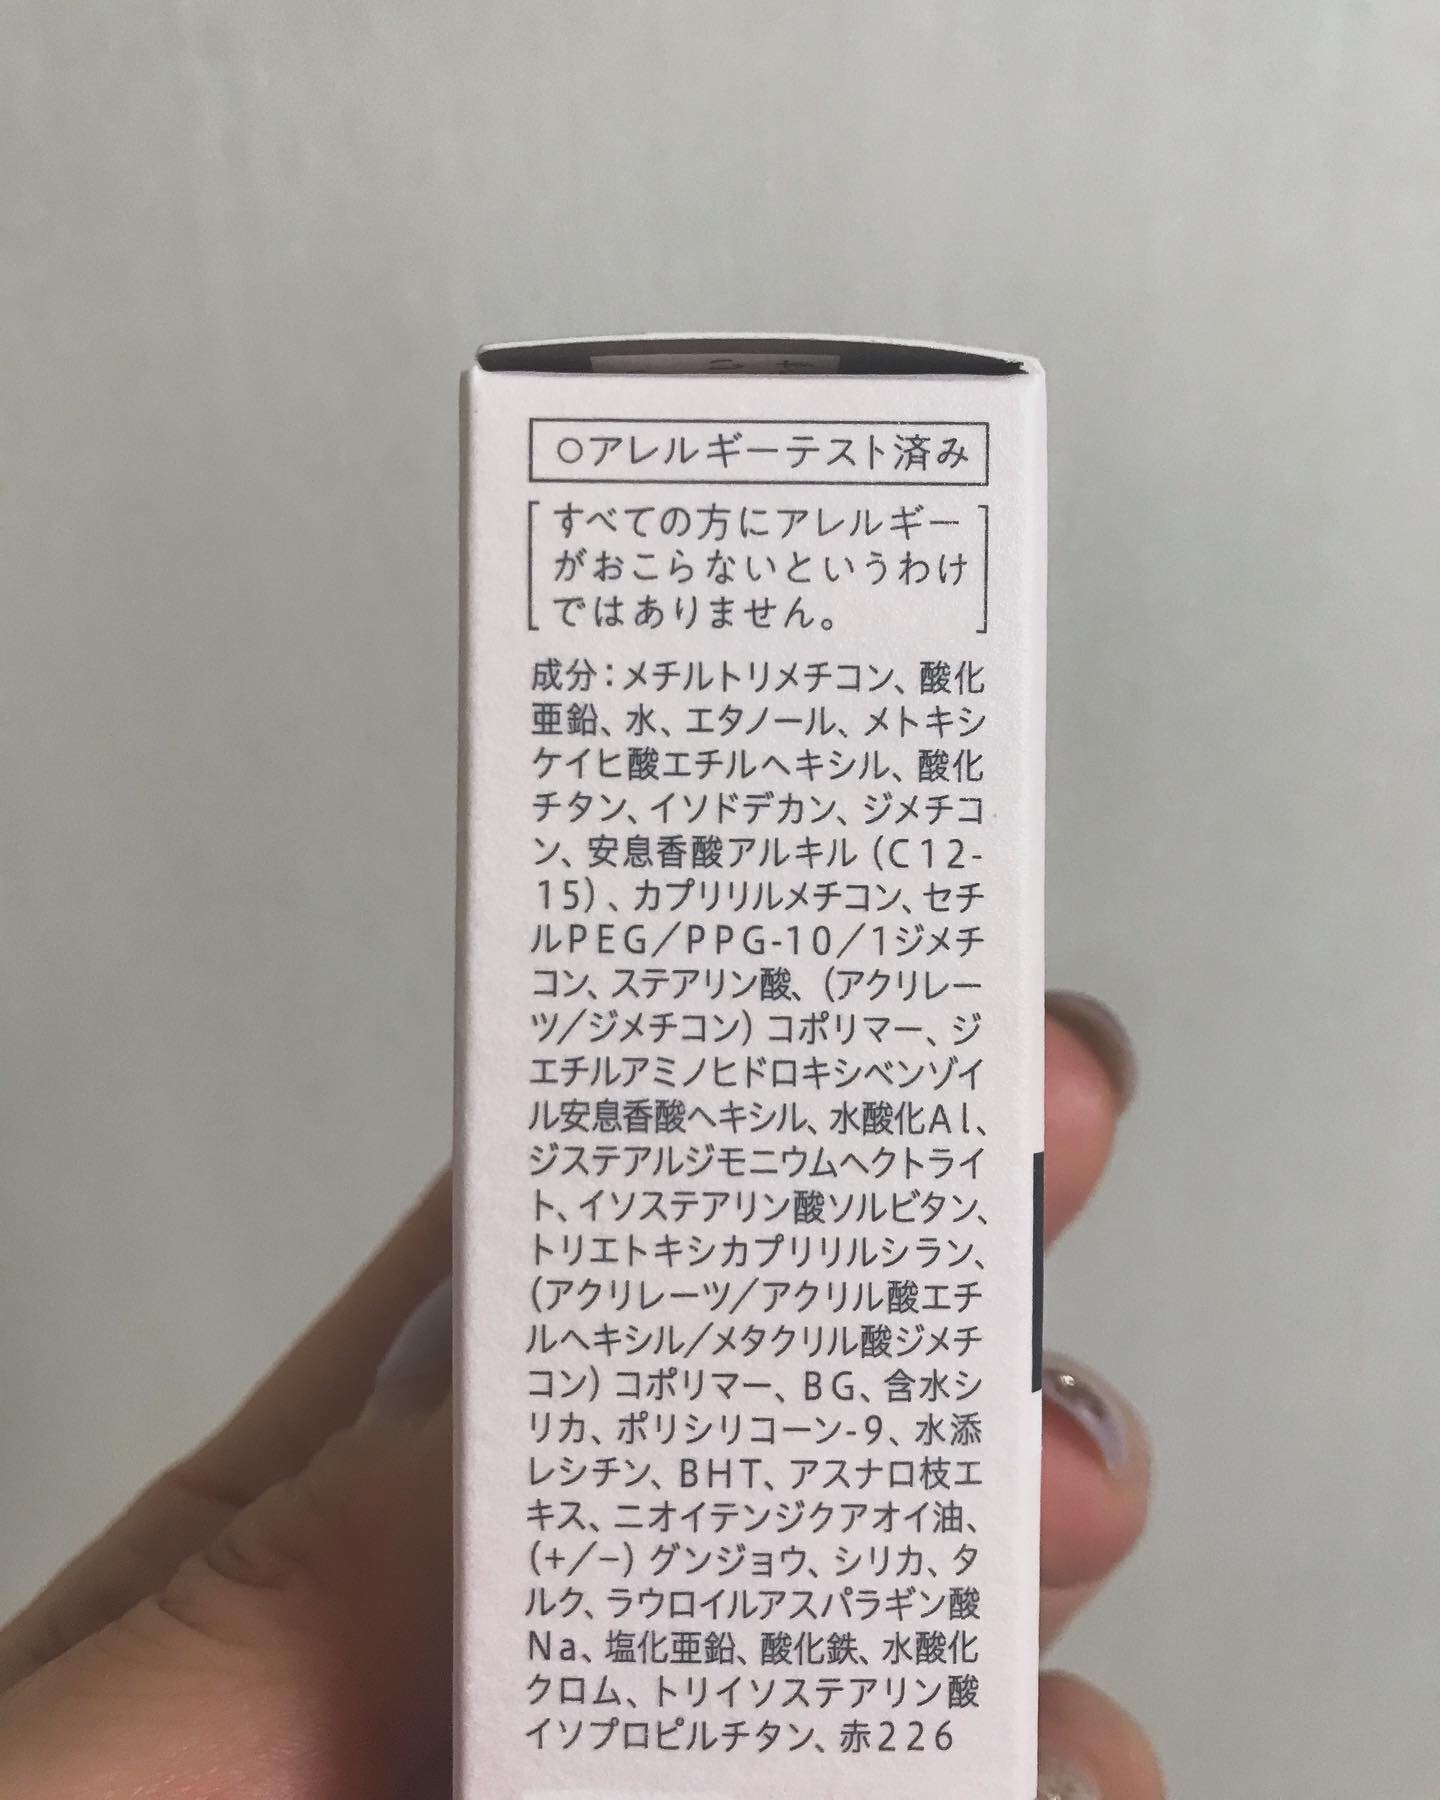 ○アレルギーテスト済み
すべての方にアレルギー
がおこらないというわけ
ではありません。
成分：メチルトリメチコン、酸化
亜鉛、水、エタノール、メトキシ
ケイヒ酸エチルヘキシル、酸化
チタン、イソドデカン、ジメチコ
ン、安息香酸アルキル（C12-
15）、カプリリルメチコン、セチ
ルPEG／PPG-10／1ジメチ
コン、ステアリン酸、（アクリレー
ツ/ジメチコン）コポリマー、ジ
エチルアミノヒドロキシベンゾイ
ル安息香酸ヘキシル、水酸化Al、
ジステアルジモニウムヘクトライ
ト、イソステアリン酸ソルビタン、
トリエトキシカプリリルシラン、
（アクリレーツ／アクリル酸エチ
ルヘキシル／メタクリル酸ジメチ
コン）コポリマー、BG、含水シ
リカ、ポリシリコーン-9、水添
レシチン、BHT、アスナロ枝エ
キス、ニオイテンジクアオイ油、
（+／−）グンジョウ、シリカ、タ
ルク、ラウロイルアスパラギン酸
Na、塩化亜鉛、酸化鉄、水酸化
クロム、トリイソステアリン酸
イソプロピルチタン、赤226